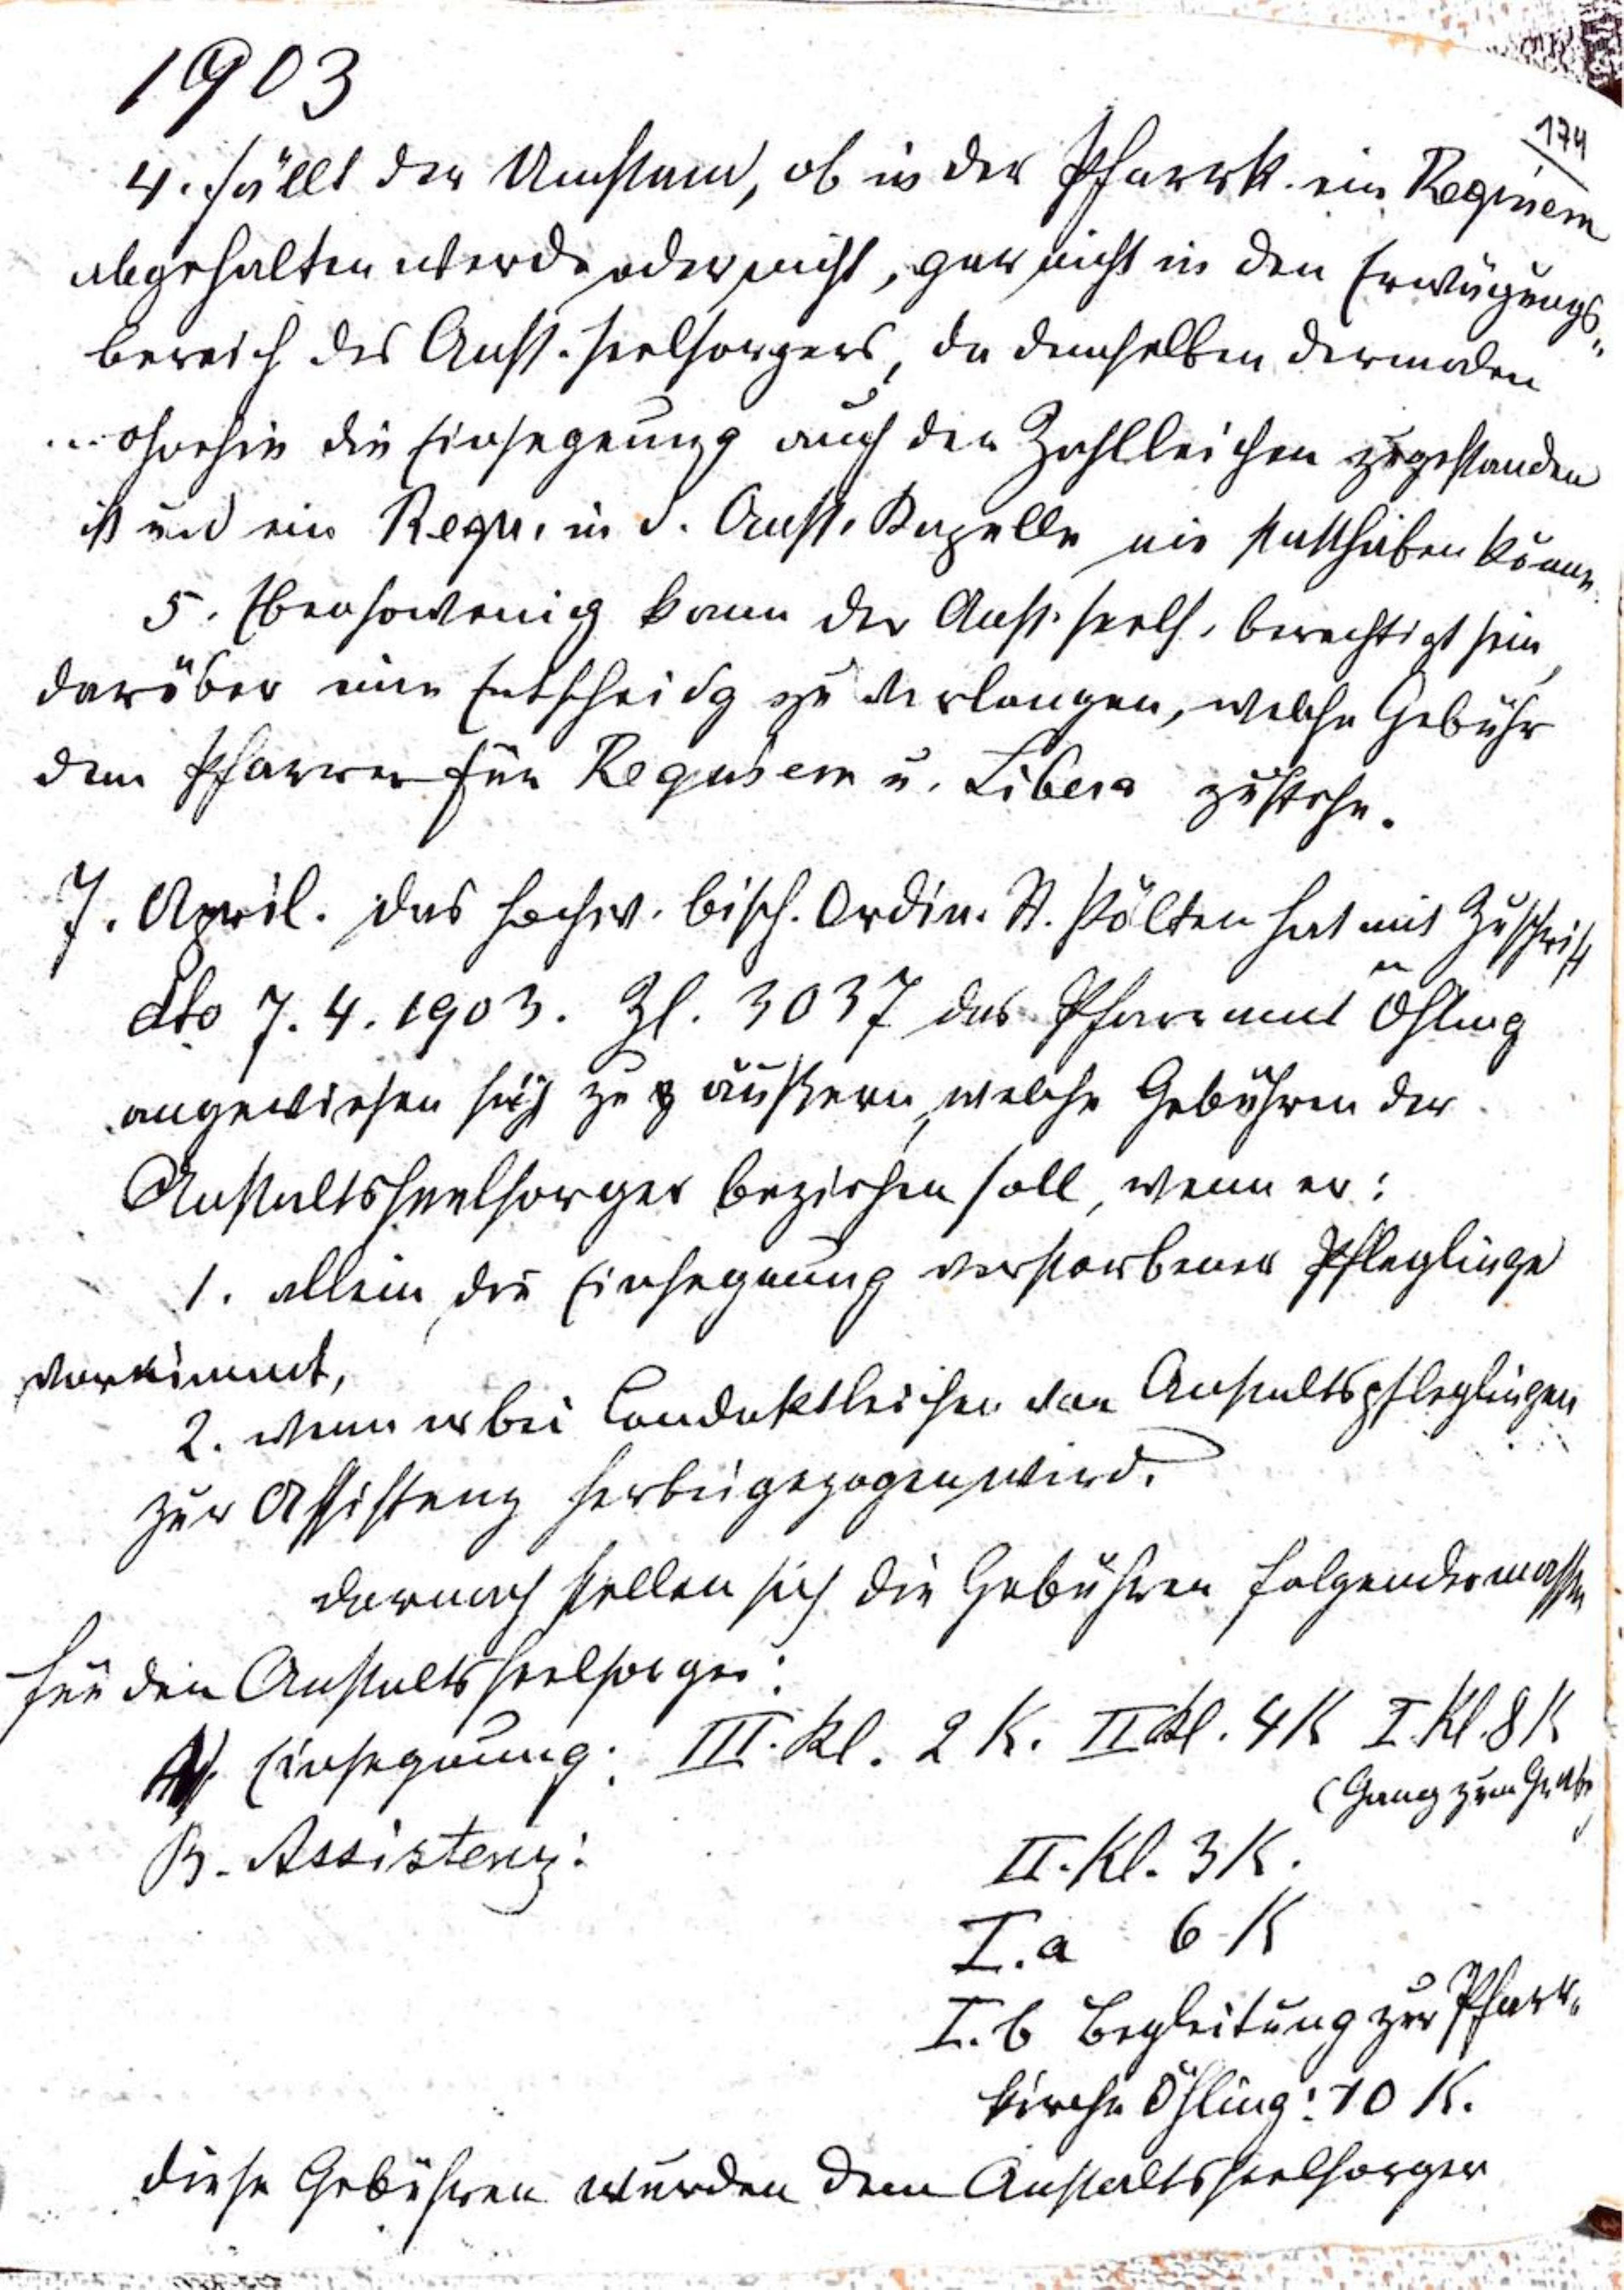 1903
174
4. fällt der Umstand, ob in der Pfarrk. ein Requiem
abgehalten werde oder nicht, gar nicht in den Erwägungs-
bereich des Anst. Seelsorgers, da demselben dermalen
ohnehin die Einsegnung auch der Zahlleichen zugestanden
ist und ein Requ. in d. Anst. Kapelle nie statthaben könne.
5. Ebensowenig kann der Anst. Seels. berechtigt sein,
darüber eine Entscheidg zu verlangen, welche Gebühr
dem Pfarrer für Requiem u. Libera zustehe.
7. April. Das hochw. bisch. Ordin. St. Pölten hat mit Zuschrift
dto 7. 4. 1903. Zl. 3037 das Pfarramt Öhling
angewiesen sich zu äußern, welche Gebühren der
Anstaltsseelsorger beziehen soll, wenn er:
1. allein die Einsegnung verstorbener Pfleglinge
vornimmt,
2. wenn er bei Conduktleichen von Anstaltspfleglingen
zur Assistenz herbeigezogen wird.
Darnach stellen sich die Gebühren folgendermassen
für den Anstaltsseelsorger:
A. Einsegnung: III. Kl. 2 K. II Kl. 4 K I. Kl. 8 K
(Gang zum Grabe)
B. Assistenz:
II. Kl. 3 K.
I. a 6 K
I. b Begleitung zur Pfarr-
kirche Öhling: 10 K.
Diese Gebühren wurden dem Anstaltsseelsorger